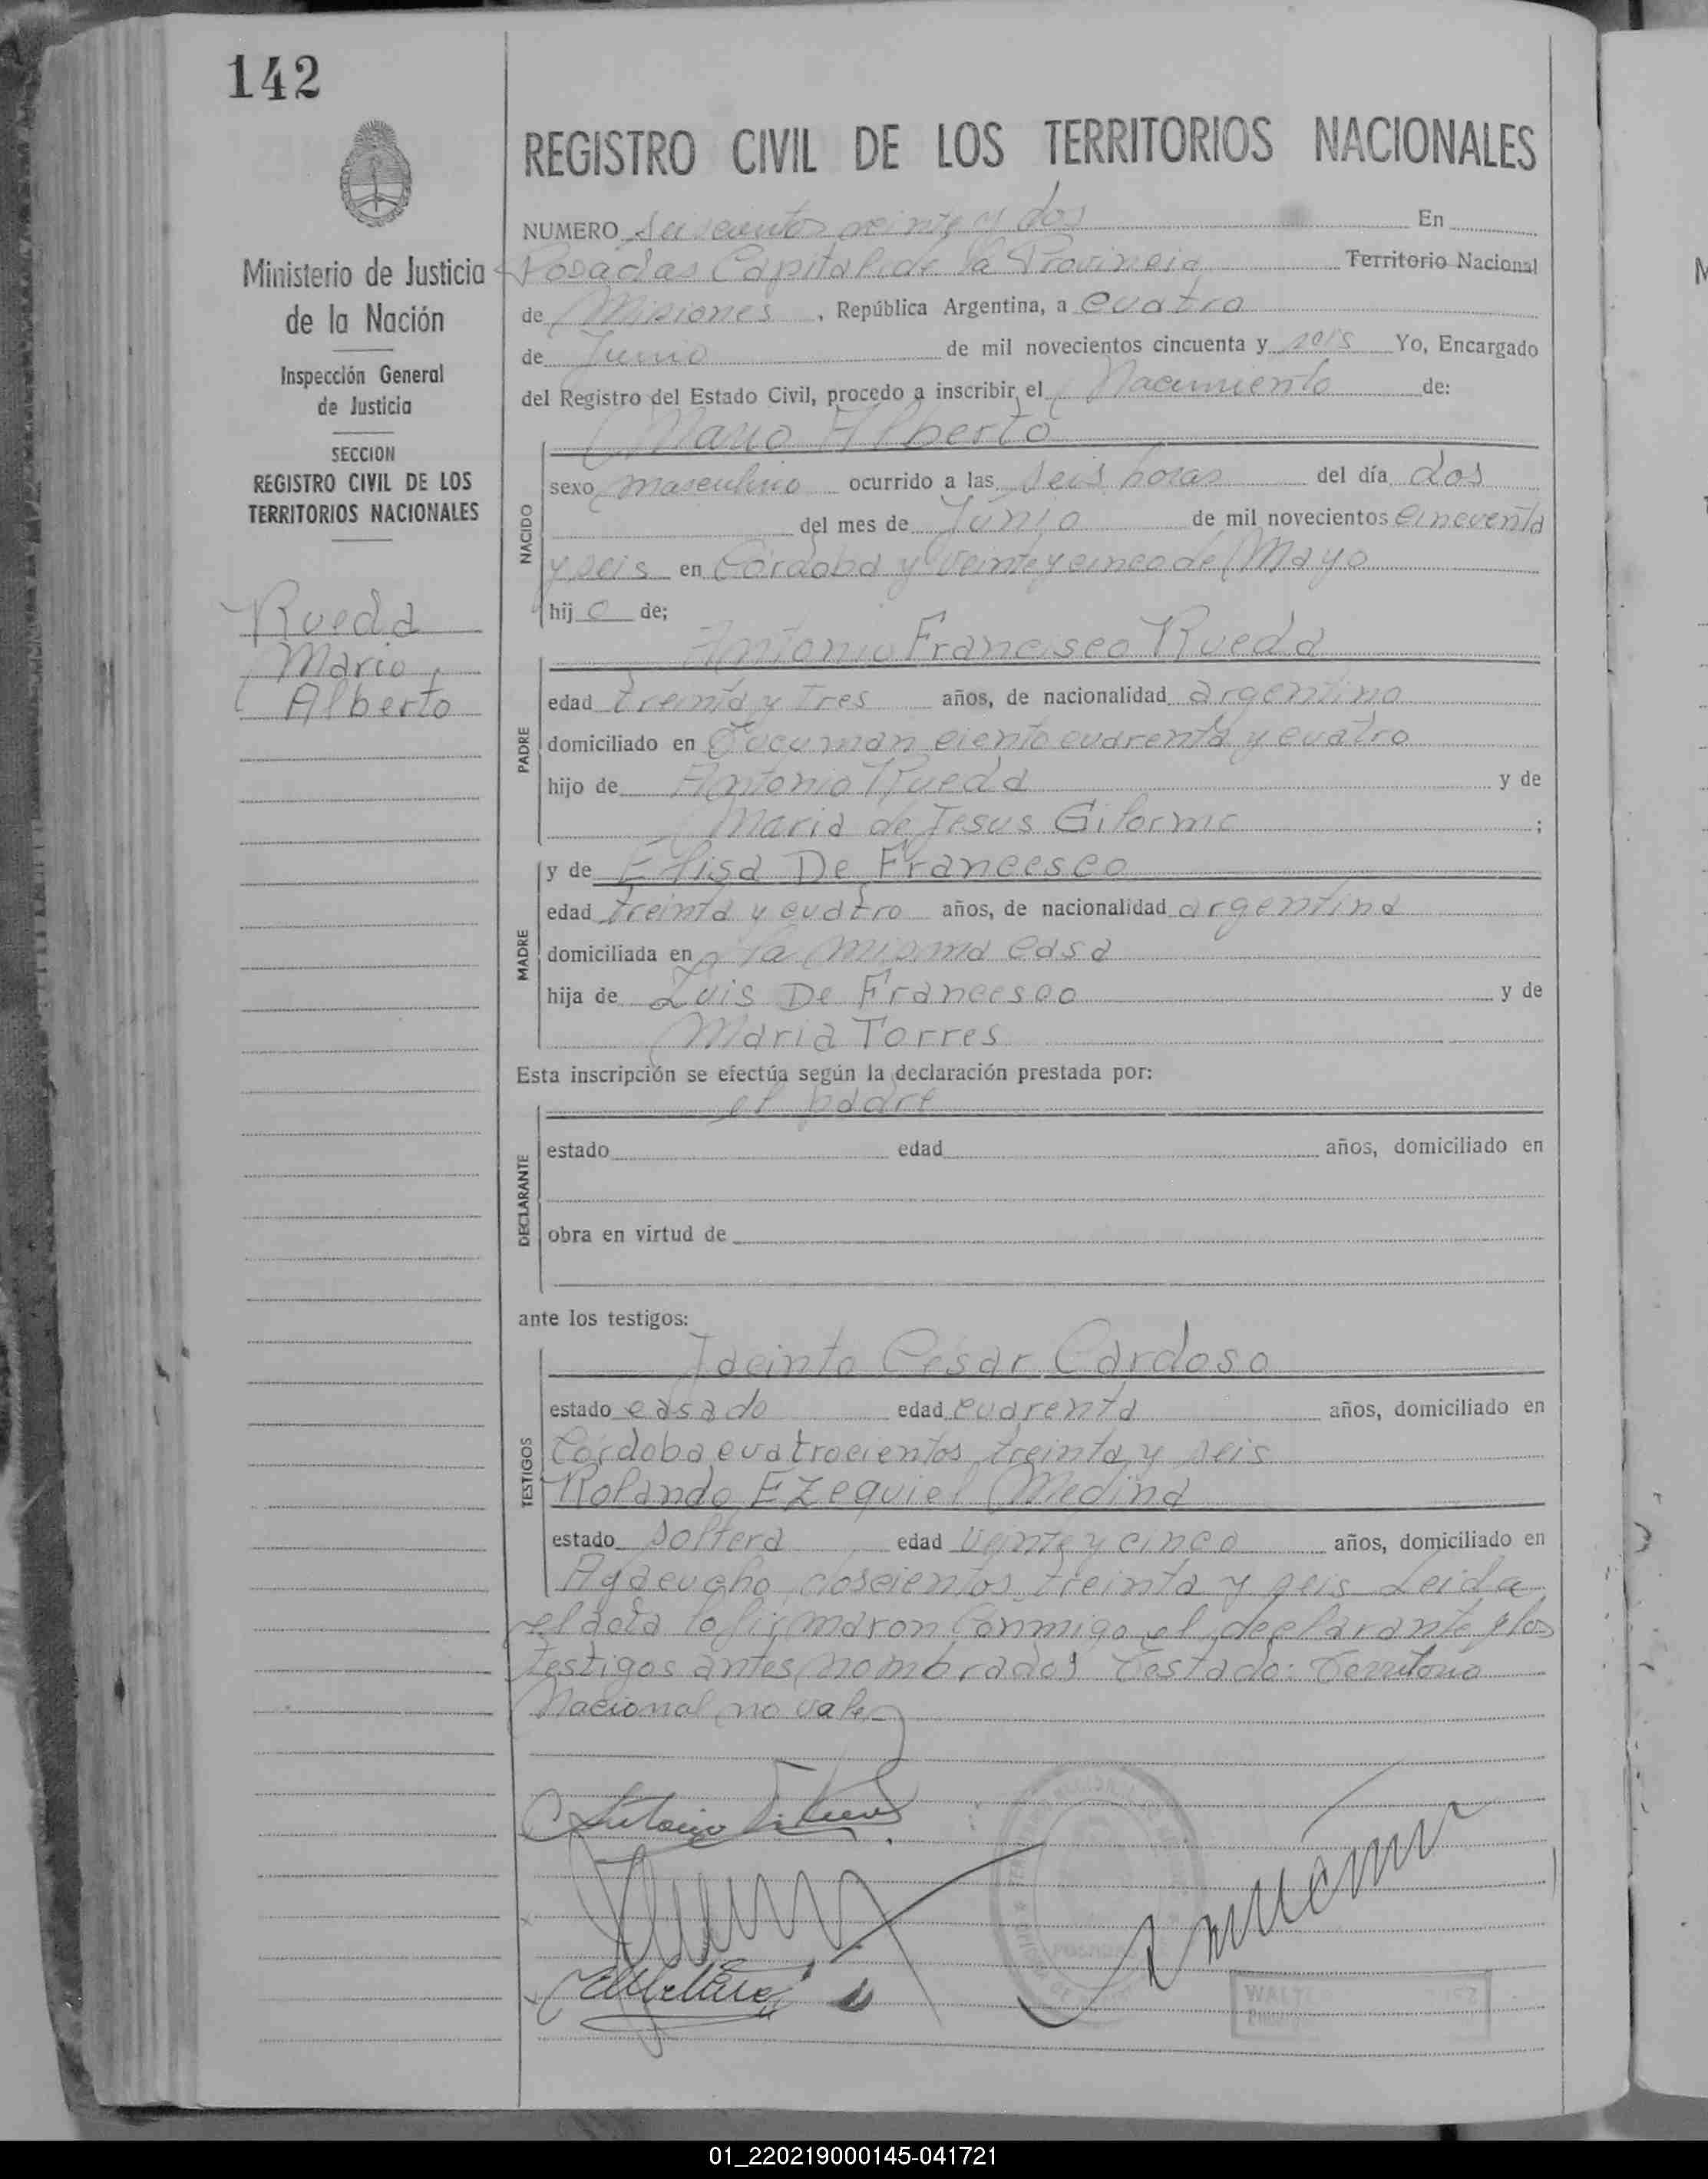 142
REGISTRO CIVIL DE LOS TERRITORIOS NACIONALES
Ministerio de Justicia
de la Nación
Inspección General
de Justicia
SECCION
REGISTRO CIVIL DE LOS
TERRITORIOS NACIONALES
Rueda
Mario
Alberto
NUMERO seiscientos veinte y dos En
Posadas Capital de la Provincia Territorio Nacional
de Misiones, República Argentina, a cuatro
de Junio de mil novecientos cincuenta y seis Yo, Encargado
del Registro del Estado Civil, procedo a inscribir el Nacimiento de:
Mario Alberto
NACIDO
sexo masculino ocurrido a las seis horas del día dos
del mes de Junio de mil novecientos cincuenta
y seis en Córdoba y Veinte y cinco de Mayo
hijo de;
Antonio Francisco Rueda
PADRE
edad treinta y tres años, de nacionalidad argentino
domiciliado en Tucuman ciento cuarenta y cuatro
hijo de Antonio Rueda y de
Maria de Jesus ;
y de Elisa De Francesco
MADRE
edad treinta y cuatro años, de nacionalidad argentina
domiciliada en la misma casa
hija de Luis De Francesco y de
Maria Torres
Esta inscripción se efectúa según la declaración prestada por:
el padre
DECLARANTE
estado edad años, domiciliado en
obra en virtud de
ante los testigos:
Jacinto Cesar Cardoso
TESTIGOS
estado casado edad cuarenta años, domiciliado en
Córdoba cuatrocientos treinta y seis
Rolando Ezequiel Medina
estado soltera edad veinte y cinco años, domiciliado en
Ayacucho doscientos treinta y seis Leida
el acta la firmaron conmigo el declarante y los
testigos antes nombrados Testado: Territorio
Nacional no vale
POSADAS
01_220219000145-041721